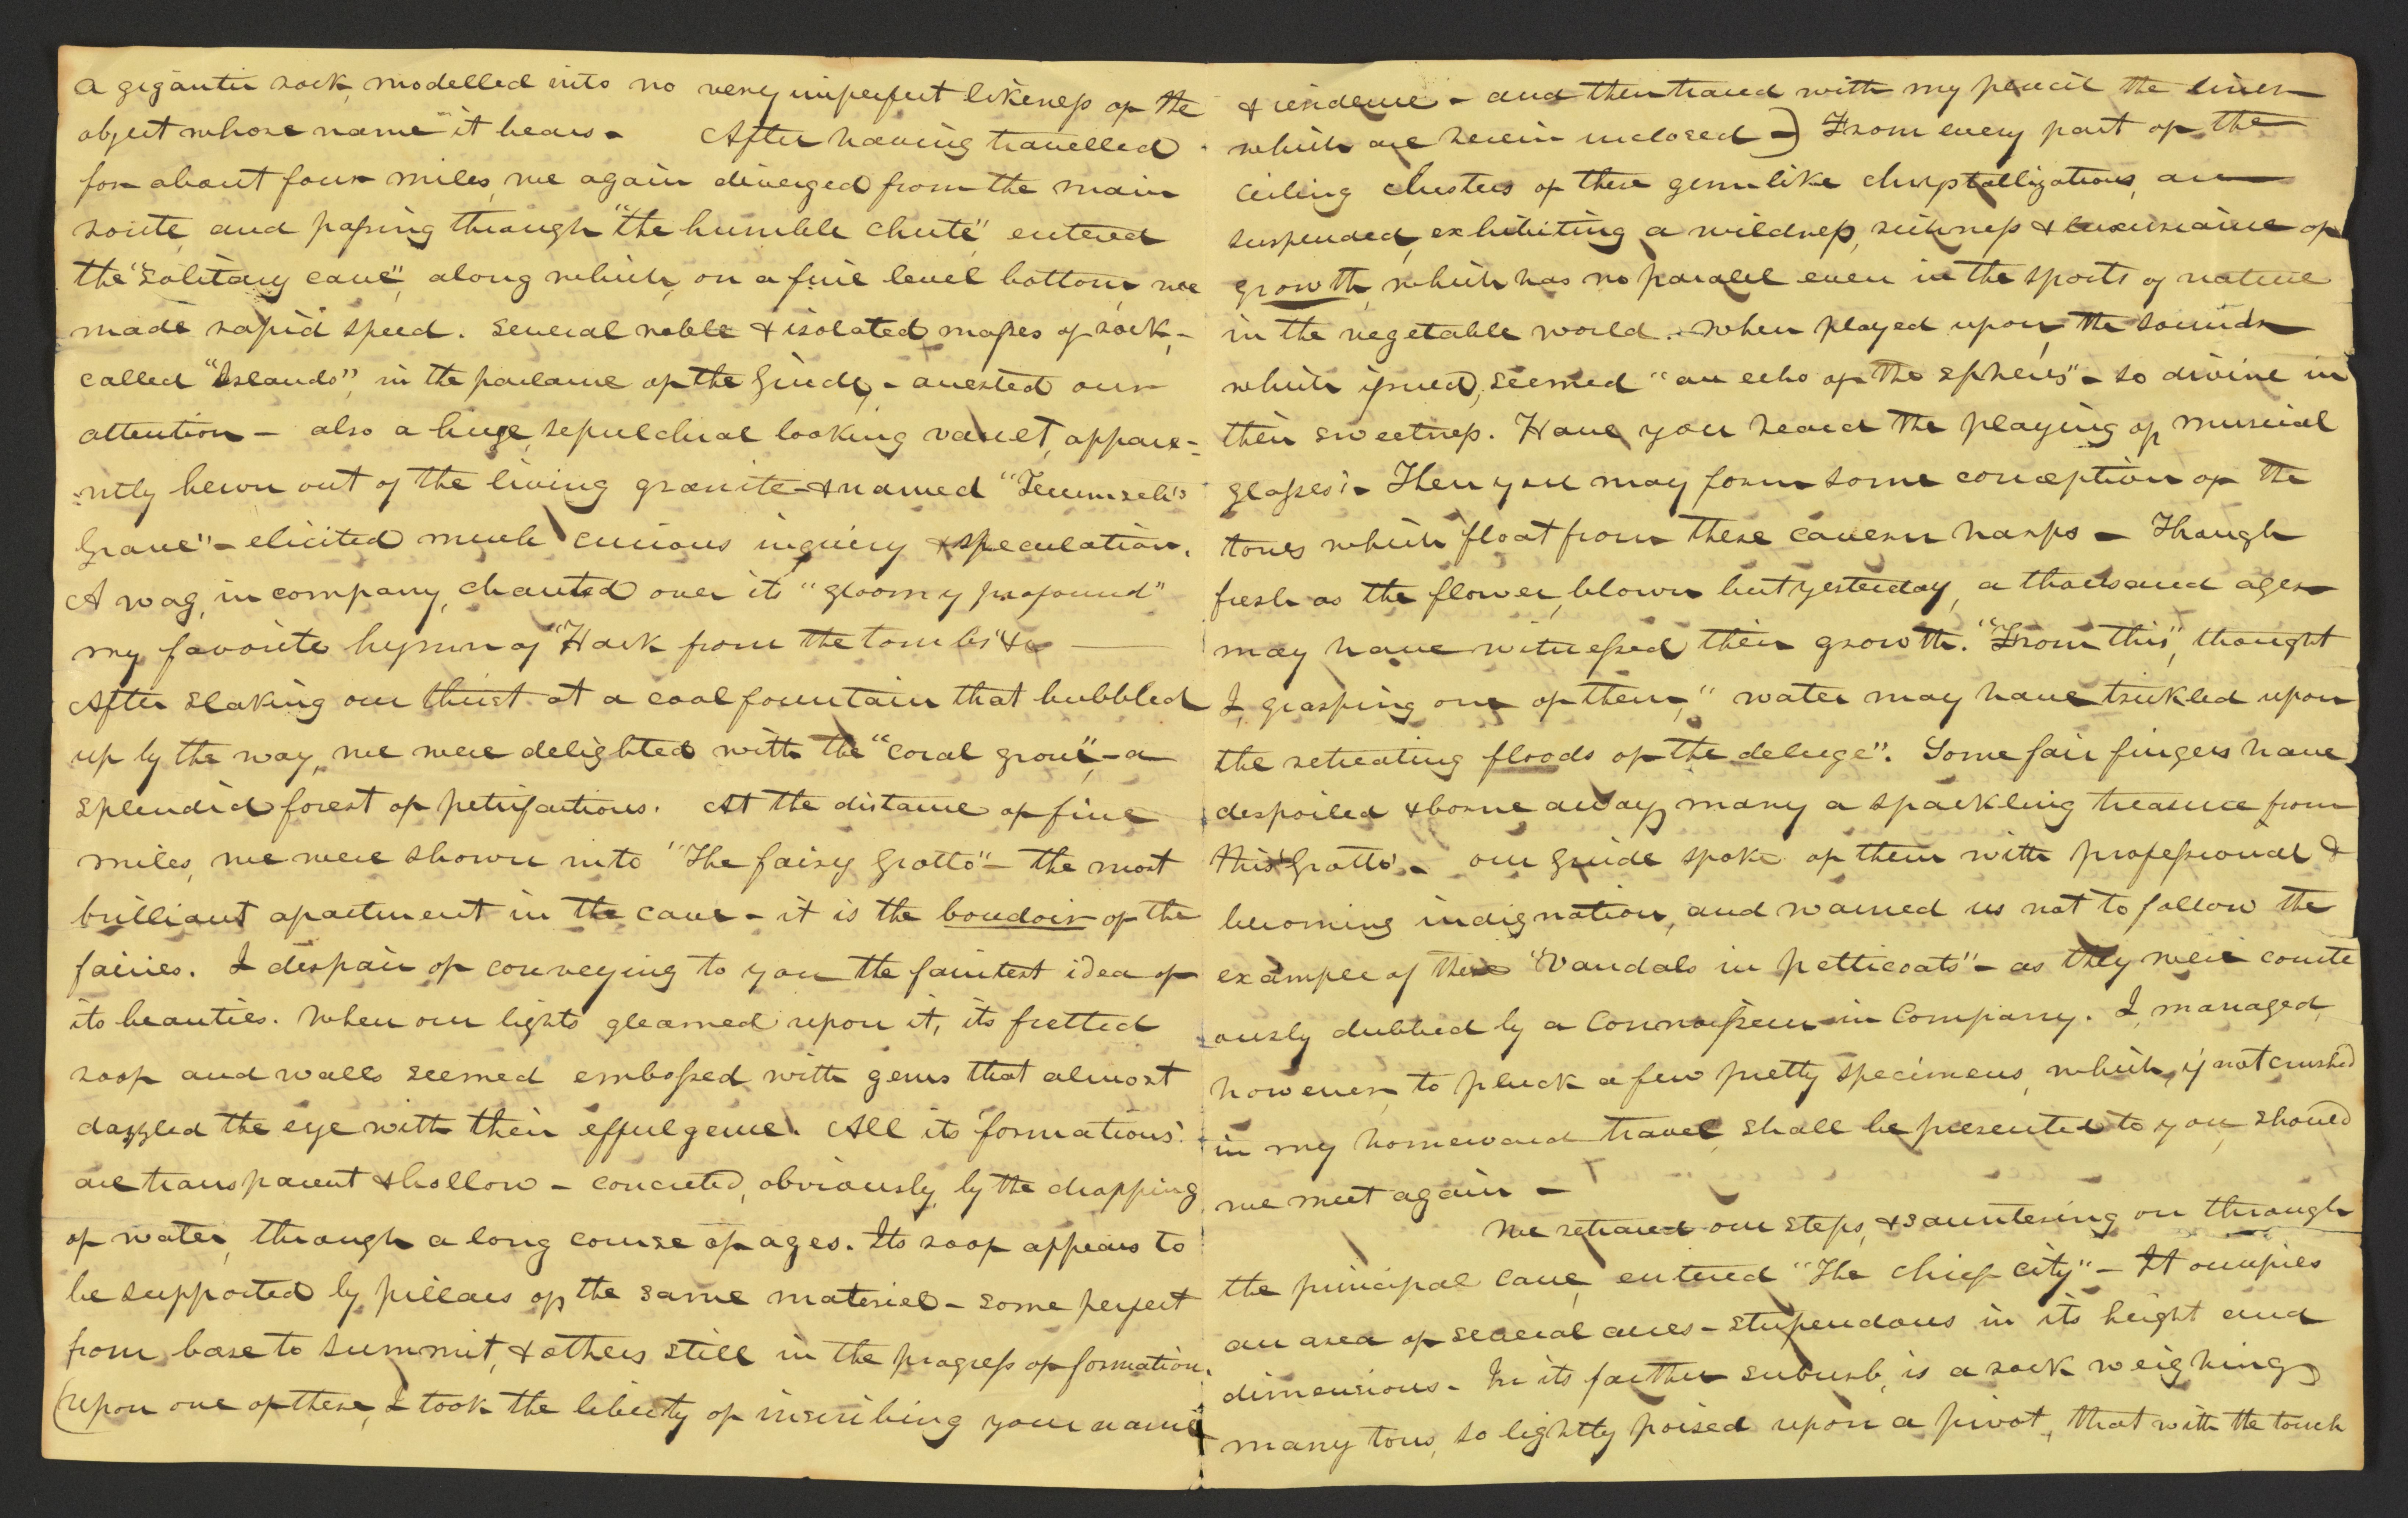 a gigantic rock, modelled into no very imperfect likeness of the
object whose name it bears - After having travelled
for about four miles, we again diverged from the main
route, and passing through "the humble chute," entered
the "Solitary cave", along which, on a fine level bottom, we
made rapid speed. Several noble & isolated masses of rock, -
called "Islands", in the parlance of the Guide, - arrested our
attention - also a huge, sepulchral looking vault, appare-
ntly hewn out of the living granite & named "Tecumseh's
Grave" - elicited much curious inquiry & speculation.
A wag, in company, chanted over its "gloomy profound"
my favorite hymn of "Hark from the tombs" &c
After slaking our thirst at a cool fountain that bubbled
up by the way, we were delighted with the "coral grove", - a
splendid forest of petrifactions. At the distance of five
miles, we were shown into "The fairy Grotto" - the most
brilliant apartment in the cave - it is the boudoir of the
fairies. I despair of conveying to you the faintest idea of
its beauties. When our lights gleamed upon it, its fretted
roof and walls seemed embossed with gems that almost
dazzled the eye with their effulgence. All its 'formations'
are transparent & hollow - concreted, obviously, by the dropping
of water, through a long course of ages. Its roof appears to
be supported by pillars of the same material - some perfect
from base to summit, & others still in the progress of formation.
(upon one of these, I took the liberty of inscribing your name
& residence - and then traced with my pencil the lines
which are herein inclosed -) From every part of the
ceiling clusters of these gemlike chrystallizations, are
suspended, exhibiting a wildness, richness & luxuriance of
growth, which has no paralel even in the sports of nature
in the vegetable world. When played upon, the sounds
which issued, seemed "an echo of the spheres" - so divine in
their sweetness. Have you heard the playing of musical
glasses? - Then you may form some conception of the
tones which float from these cavern harps - Though
fresh as the flower, blown but yesterday, a thousand ages
may have witnessed their growth. "From this", thought
I, grasping one of them, "water may have trickled upon
the retreating floods of the deluge". Some fair fingers have
despoiled & borne away many a sparkling treasure from
this Grotto. - our guide spoke of them with professional &
becoming indignation, and warned us not to follow the
example of these "Vandals in petticoats" - as they were courte
ously dubbed by a Connoisseur in Company. I, managed,
however, to pluck a few pretty specimens, which, if not crushed
in my homeward travel, shall be presented to you, should
we meet again -
We retraced our steps, & sauntering on through
the principal cave, entered "The chief city" - It occupies
an area of several acres - stupendous in its height and
dimensions - In its farther suburb, is a rock weighing
many tons, so lightly poised upon a pivot, that with the touch